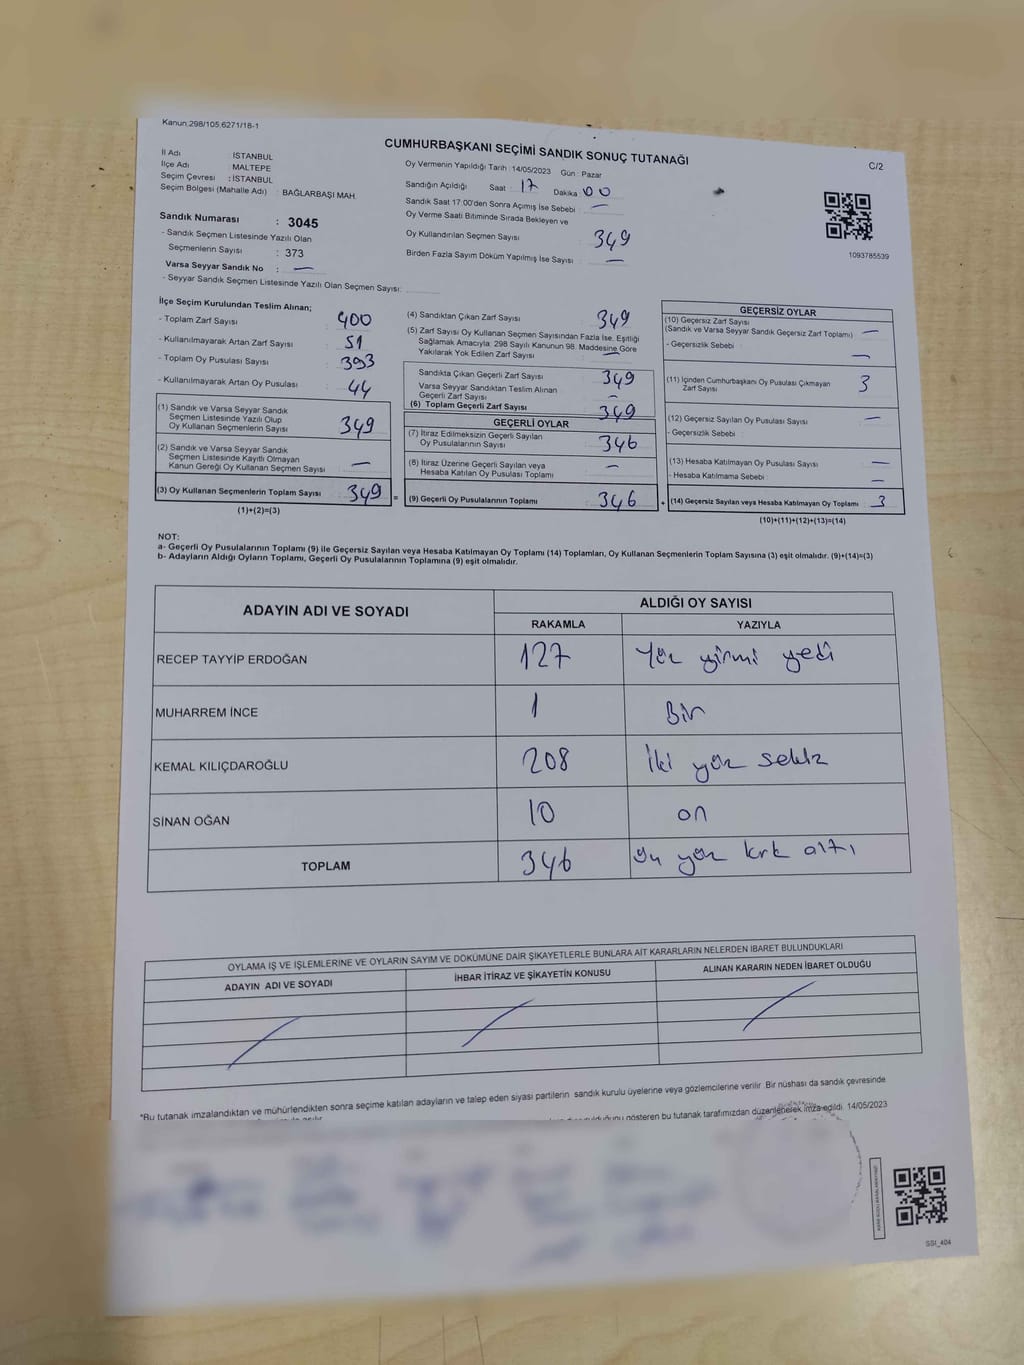 Kanun:298/105,6271/18-1
CUMHURBAŞKANI SEÇİMİ SANDIK SONUÇ TUTANAĞI
C/2
İl Adı : İSTANBUL
İlçe Adı : MALTEPE
Seçim Çevresi : İSTANBUL
Seçim Bölgesi (Mahalle Adı) : BAĞLARBAŞI MAH.
Oy Vermenin Yapıldığı Tarih : 14/05/2023 Gün : Pazar
Sandığın Açıldığı Saat : 17 Dakika : 00
Sandık Saat 17:00'den Sonra Açımış İse Sebebi : —
Oy Verme Saati Bitiminde Sırada Bekleyen ve
Oy Kullandırılan Seçmen Sayısı : 349
Birden Fazla Sayım Döküm Yapılmış İse Sayısı : —
1093785539
Sandık Numarası : 3045
- Sandık Seçmen Listesinde Yazılı Olan
Seçmenlerin Sayısı : 373
Varsa Seyyar Sandık No : —
- Seyyar Sandık Seçmen Listesinde Yazılı Olan Seçmen Sayısı:
İlçe Seçim Kurulundan Teslim Alınan;
- Toplam Zarf Sayısı : 400
- Kullanılmayarak Artan Zarf Sayısı : 51
- Toplam Oy Pusulası Sayısı : 393
- Kullanılmayarak Artan Oy Pusulası : 44
(1) Sandık ve Varsa Seyyar Sandık
Seçmen Listesinde Yazılı Olup
Oy Kullanan Seçmenlerin Sayısı : 349
(2) Sandık ve Varsa Seyyar Sandık
Seçmen Listesinde Kayıtlı Olmayan
Kanun Gereği Oy Kullanan Seçmen Sayısı : —
(3) Oy Kullanan Seçmenlerin Toplam Sayısı : 349
(1)+(2)=(3)
(4) Sandıktan Çıkan Zarf Sayısı : 349
(5) Zarf Sayısı Oy Kullanan Seçmen Sayısından Fazla İse, Eşitliği
Sağlamak Amacıyla: 298 Sayılı Kanunun 98. Maddesine Göre
Yakılarak Yok Edilen Zarf Sayısı : —
Sandıkta Çıkan Geçerli Zarf Sayısı : 349
Varsa Seyyar Sandıktan Teslim Alınan
Geçerli Zarf Sayısı : —
(6) Toplam Geçerli Zarf Sayısı : 349
GEÇERLİ OYLAR
(7) İtiraz Edilmeksizin Geçerli Sayılan
Oy Pusulalarının Sayısı : 346
(8) İtiraz Üzerine Geçerli Sayılan veya
Hesaba Katılan Oy Pusulası Toplamı : —
= (9) Geçerli Oy Pusulalarının Toplamı : 346
GEÇERSİZ OYLAR
(10) Geçersiz Zarf Sayısı
(Sandık ve Varsa Seyyar Sandık Geçersiz Zarf Toplamı) : —
- Geçersizlik Sebebi : —
(11) İçinden Cumhurbaşkanı Oy Pusulası Çıkmayan
Zarf Sayısı : 3
(12) Geçersiz Sayılan Oy Pusulası Sayısı : —
- Geçersizlik Sebebi :
(13) Hesaba Katılmayan Oy Pusulası Sayısı : —
- Hesaba Katılmama Sebebi : —
+ (14) Geçersiz Sayılan veya Hesaba Katılmayan Oy Toplamı : 3
(10)+(11)+(12)+(13)=(14)
NOT:
a- Geçerli Oy Pusulalarının Toplamı (9) ile Geçersiz Sayılan veya Hesaba Katılmayan Oy Toplamı (14) Toplamları, Oy Kullanan Seçmenlerin Toplam Sayısına (3) eşit olmalıdır. (9)+(14)=(3)
b- Adayların Aldığı Oyların Toplamı, Geçerli Oy Pusulalarının Toplamına (9) eşit olmalıdır.
ADAYIN ADI VE SOYADI
ALDIĞI OY SAYISI
RAKAMLA YAZIYLA
RECEP TAYYİP ERDOĞAN 127 Yüz yirmi yedi
MUHARREM İNCE 1 Bir
KEMAL KILIÇDAROĞLU 208 İki yüz sekiz
SİNAN OĞAN 10 on
TOPLAM 346 Üç yüz kırk altı
OYLAMA İŞ VE İŞLEMLERİNE VE OYLARIN SAYIM VE DÖKÜMÜNE DAİR ŞİKAYETLERLE BUNLARA AİT KARARLARIN NELERDEN İBARET BULUNDUKLARI
ADAYIN ADI VE SOYADI
İHBAR İTİRAZ VE ŞİKAYETİN KONUSU
ALINAN KARARIN NEDEN İBARET OLDUĞU
*Bu tutanak imzalandıktan ve mühürlendikten sonra seçime katılan adayların ve talep eden siyasi partilerin sandık kurulu üyelerine veya gözlemcilerine verilir. Bir nüshası da sandık çevresinde
gösteren bu tutanak tarafımızdan düzenlenerek imza edildi. 14/05/2023
SSI_404